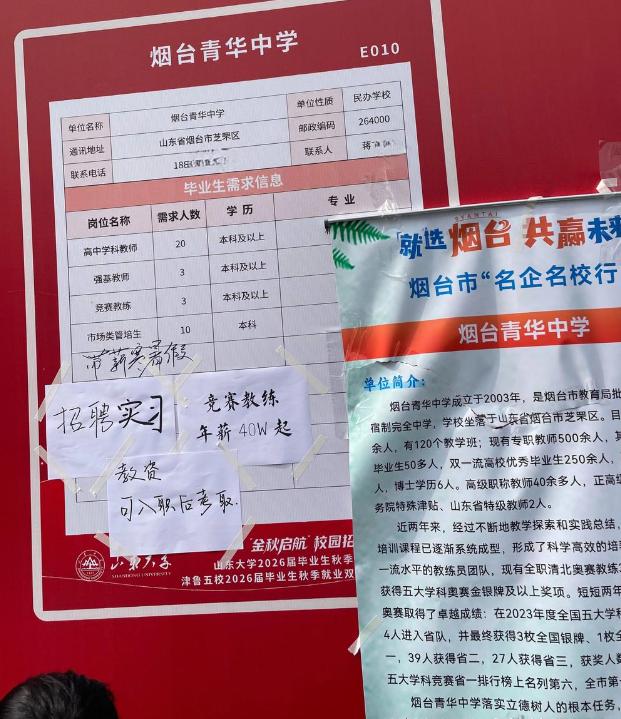 烟台青华中学
E010
单位名称 烟台青华中学 单位性质 民办学校
通讯地址 山东省烟台市芝罘区 邮政编码 264000
联系电话 联系人 蒋
毕业生需求信息
岗位名称 需求人数 学 历 专 业
高中学科教师 20 本科及以上
强基教师 3 本科及以上
竞赛教练 3 本科及以上
市场类管培生 10 本科
带薪寒暑假
招聘实习
竞赛教练
年薪40W起
教资
可入职后考取.
山东大学
SHANDONG UNIVERSITY
"金秋启航"校园招
山东大学2026届毕业生秋季
津鲁五校2026届毕业生秋季就业双
YANTAI
就选烟台 共赢未来
烟台市“名企名校行
烟台青华中学
单位简介：
烟台青华中学成立于2003年，是烟台市教育局批
宿制完全中学，学校坐落于山东省烟台市芝罘区。目
余人，有120个教学班；现有专职教师500余人，其
毕业生50多人，双一流高校优秀毕业生250余人，
人，博士学历6人。高级职称教师40余多人，正高级
务院特殊津贴、山东省特级教师2人。
近两年来，经过不断地教学探索和实践总结，
培训课程已逐渐系统成型，形成了科学高效的培
一流水平的教练员团队，现有全职清北奥赛教练
获得五大学科奥赛金银牌及以上奖项。短短两年
奥赛取得了卓越成绩：在2023年度全国五大学科
4人进入省队，并最终获得3枚全国银牌、1枚全
一，39人获得省二，27人获得省三，获奖人数
五大学科竞赛省一排行榜上名列第六，全市第一
烟台青华中学落实立德树人的根本任务，